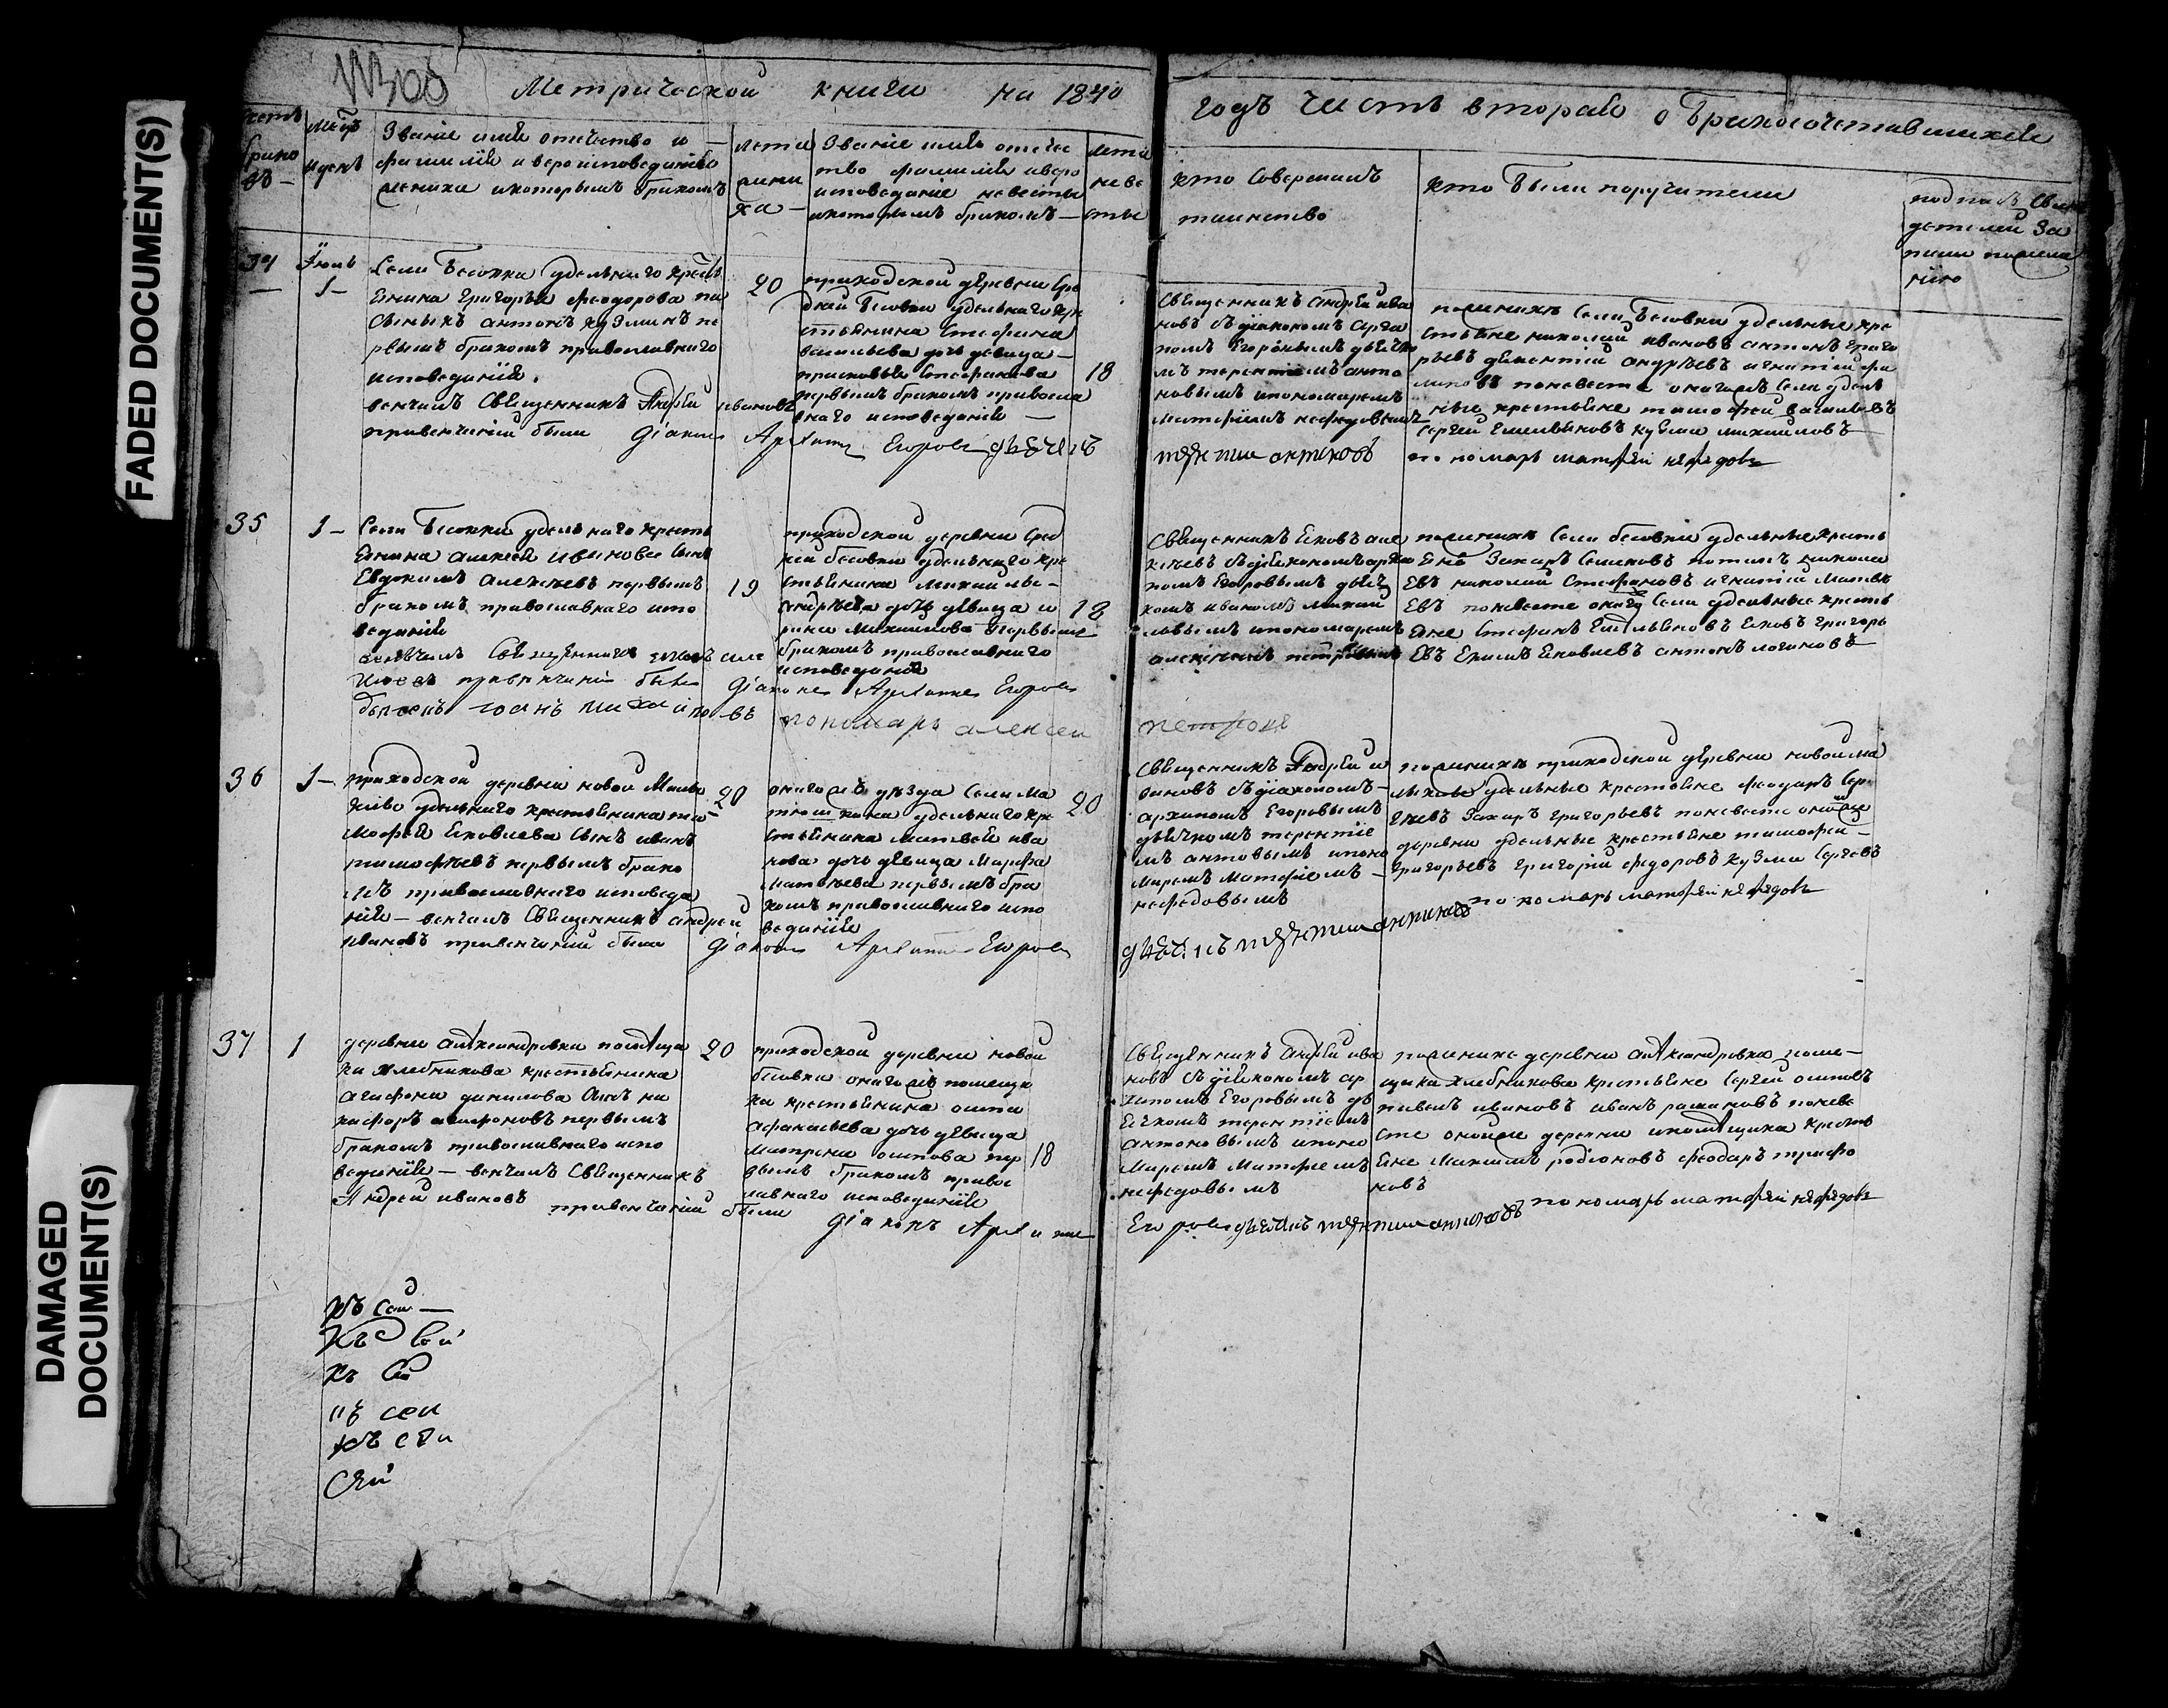 FADED DOCUMENT(S)
DAMAGED DOCUMENT(S)
Метрической книги на 1840
годъ часть вторая о бракосочетавшихся
Званіе имя отечество и
фамилія и вероисповеданіе
жениха и которымъ бракомъ
лета
жени
ха —
Званіе имя отечес
тво фамилія и веро
исповеданіе невесты
и которымъ бракомъ —
лета
неве
сты
кто совершалъ
таинство
кто были поручители
34
Іюнь
1 —
Села Бесовки удельнаго кресть
янина Григорья Феодорова па
сынокъ Антонъ Кузминъ пе
рвымъ бракомъ православнаго
исповеданія.
венчалъ Священникъ Андрей Ивановъ
привенчаніи были Діаконъ Архипъ Егоровъ дьячекъ
20
приходской деревни Сре
дней Бесовки удельнаго кре
стьянина Стефана
Васильева дочь девица —
Прасковья Стефанова
первымъ бракомъ правосла
внаго исповеданія —
18
Священникъ Андрей Ива
новъ съ діакономъ Архи
помъ Егоровымъ дьячко
мъ Терентіемъ Анто
новымъ и пономаремъ
Матфіемъ Нефедовымъ
Терентій Антоновъ
пожениху Села Бесовки удельные кре
стьяне Николай Ивановъ Антонъ Григо
рьевъ Дементій Андреевъ Игнатій Фи
липовъ поневесте онагожъ Села удель
ные крестьяне Тимофей Васильевъ
Сергей Емельяновъ Кузма Михайловъ
пономарь Матфей Нефедовъ
35
1 —
Села Бесовки удельнаго кресть
янина Алексея Иванова сынъ
Евдокимъ Алексеевъ первымъ
бракомъ православнаго испо
веданія
венчалъ Священникъ Яковъ Але
ксеевъ привенчаніи были Діаконъ Архипъ Егоровъ
дьячекъ Іоанъ Михайловъ пономарь Алексей
Петровъ
19
приходской деревни Сред
ней Бесовки удельнаго кре
стьянина Михайлы —
Андреева дочь девица И
рина Михайлова первымъ
бракомъ православнаго
исповеданія
18
Священникъ Яковъ Але
ксеевъ съ діакономъ Архи
помъ Егоровымъ дьяч
комъ Иваномъ Михай
ловымъ и пономаремъ
Алексеемъ Петровымъ
пожениху Села Бесовки удельные кресть
яне Захаръ Семеновъ Потапъ Никола
евъ Николай Стефановъ Игнатій Матве
евъ поневесте онагожъ Села удельные кресть
яне Стефанъ Емельяновъ Яковъ Григорь
евъ Екимъ Яковлевъ Антонъ Логиновъ
36
1 —
приходской деревни Новой Малы
клы удельнаго крестьянина Ти
мофея Яковлева сынъ Иванъ
Тимофеевъ первымъ брако
мъ православнаго исповеда
нія — венчалъ Священникъ Андрей
Ивановъ привенчаніи были Діаконъ Архипъ Егоровъ
20
онаго уезда Села Ма
тюшкина удельнаго кре
стьянина Матвея Ива
нова дочь девица Марфа
Матвеева первымъ бра
комъ православнаго испо
веданія
20
Священникъ Андрей И
вановъ съ діакономъ —
Архипомъ Егоровымъ
дьячкомъ Терентіе
мъ Антоновымъ и поно
маремъ Матфіемъ —
Нефедовымъ
дьячекъ Терентій Антоновъ пономарь Матфей Нефедовъ
пожениху приходской деревни Новой Ма
лыклы удельные крестьяне Феодоръ Сер
геевъ Захаръ Григорьевъ поневесте онойже
деревни удельные крестьяне Тимофей —
Григорьевъ Григорій Федоровъ Кузма Сергеевъ
37
1
деревни Александровки помещи
ка Хлебникова крестьянина
Агафона Данилова сынъ Ни
кифоръ Агафоновъ первымъ
бракомъ православнаго испо
веданія — венчалъ Священникъ
Андрей Ивановъ привенчаніи были Діаконъ Архипъ
20
приходской деревни Новой
Бесовки онагожъ помещи
ка крестьянина Осипа
Афанасьева дочь девица
Матрена Осипова пер
вымъ бракомъ правос
лавнаго исповеданія
18
Священникъ Андрей Ива
новъ съ діакономъ Ар
хипомъ Егоровымъ дь
ячкомъ Терентіемъ
Антоновымъ и поно
маремъ Матфіемъ
Нефедовымъ
Егоровъ дьячекъ Терентій Антоновъ пономарь Матфей Нефедовъ
пожениху деревни Александровки поме —
щика Хлебникова крестьяне Сергей Осиповъ
Павелъ Ивановъ Иванъ Романовъ поневе
сте онойже деревни и помещика кресть
яне Максимъ Родіоновъ Феодоръ Трифо
новъ